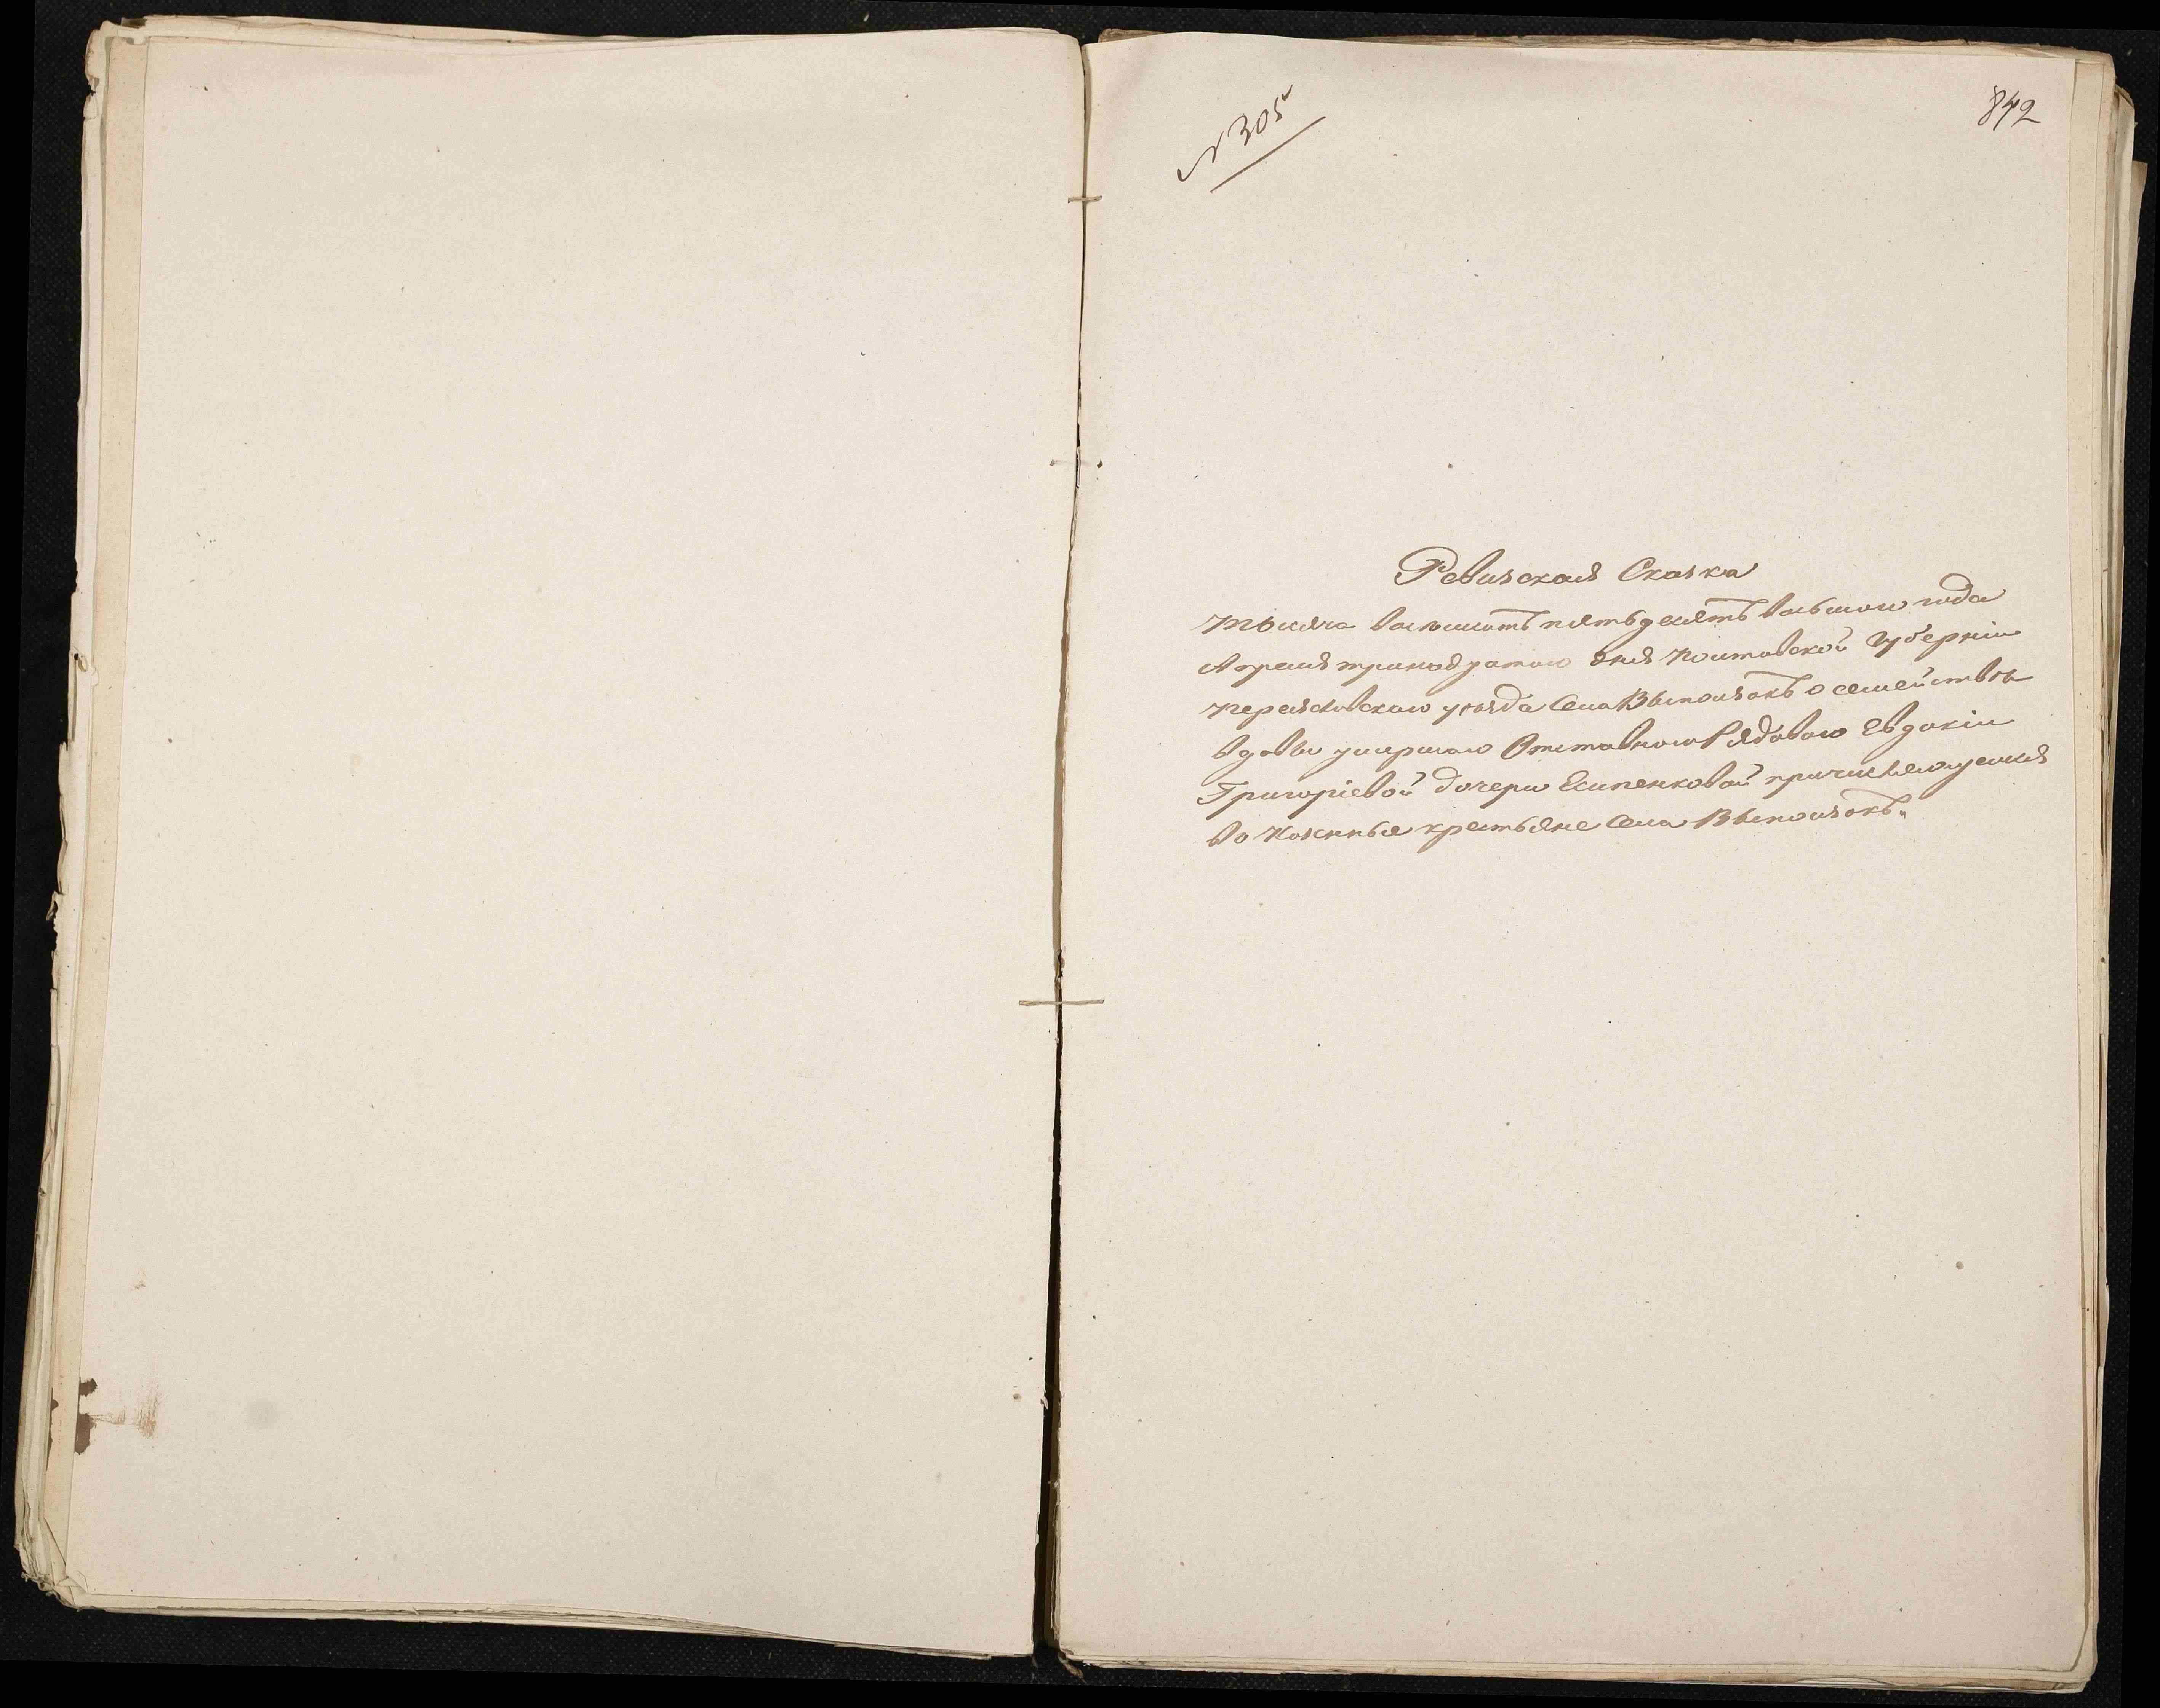 № 305
842
Ревизская Сказка
Тысяча восемьсотъ пятьдесятъ восьмого года
Апреля тринадцатого дня Полтавской Губерніи
Переяславского уезда Села Выползокъ о семействѣ
вдовы умершаго Отставного Рядового Евдокіи
Григоріевой дочери Есипенковой причисляющемся
во Казенные крестьяне Села Выползокъ.